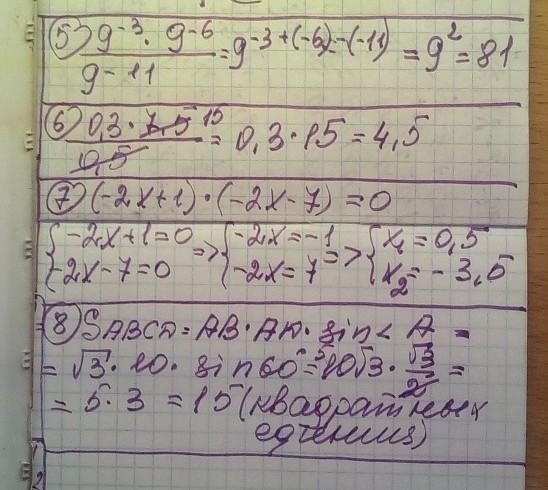 ⑤ 9⁻³ · 9⁻⁶ / 9⁻¹¹ = 9⁻³⁺⁽⁻⁶⁾⁻⁽⁻¹¹⁾ = 9² = 81
⑥ 0,3 · 7,5 15 / 0,5 = 0,3 · 15 = 4,5
⑦ (-2x+1) · (-2x-7) = 0
{ -2x+1=0 => { -2x=-1 => { x₁ = 0,5
-2x-7=0 -2x=7 x₂ = -3,5
⑧ SABCD = AB · AD · sin < A =
= √3 · 10 · sin 60° = 10√3 · √3/2 =
= 5 · 3 = 15 (квадратных
едтениц)